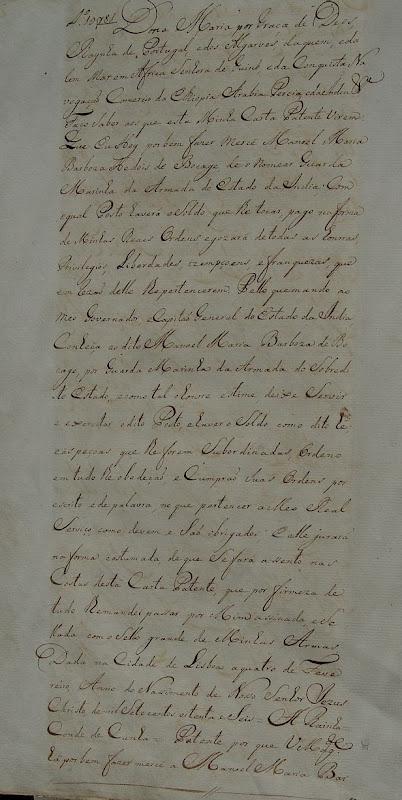 Dona Maria por Graça de Deos
Raynha de Portugal, e dos Algarves daquem, e da
lem Mar em Africa Senhora de Guiné e da Conquista Na
vegação Comerco da Ethiopia Arabia Percia, e da India &ª
Faço Saber aos que esta Minha Carta Patente Virem
Que Eu Hey por bem fazer Mercê Manoel Maria
Barboza Hedois de Bocage de o Nomear Guarda
Marinha da Armada do Estado da India. Com
o qual Posto haverá o Soldo que lhe tocar, pago na forma
de Minhas Reaes Ordens e gozará de todas as honras,
Privilegios, Liberdades izempçoens e franquezas, que
em razaõ delle lhe pertencerem. Pello que mando ao
Meo Governador, e Capitaõ General do Estado da India
Conheça ao dito Manoel Maria Barboza de Bo
cage, por Guarda Marinha da Armada do Sobredi
to Estado, e como tal o honre estime, deixe Servir
e exercitar o dito Posto, e haver o Soldo como dito he
e as pecoas que lhe forem Subordinadas, Ordeno
em tudo lhe obedeçaõ e Cumpraõ Suas Ordens por
escrito e de palavra no que pertencer a Meo Real
Serviço como devem e Saõ obrigados: E elle jurará
na forma costumada de que Se fará asento nas
Costas desta Carta Patente, que por firmeza de
tudo lhe mandei passar por Mim assinada, e Se
llada com o Sello grande de Minhas Armas
Dada na Cidade de Lisboa a quatro de Feve
reiro, Anno do Nascimento de Nosso Senhor Jezus
Christo de mil Sete centos e oitenta e Seis = A Rainha
Conde de Cunha = Patente por que V. Magᵈᵉ
há por bem fazer mercê a Manuel Maria Bar